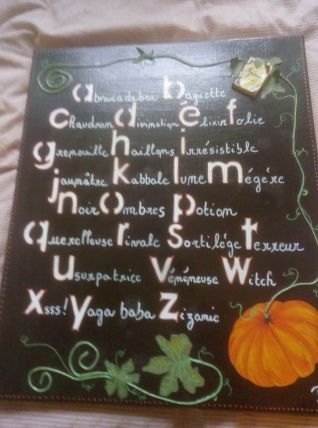 abracadabra baguette
Chaudron divination élixir folie
grenouille haillons irrésistible
jaunâtre kabbale lune mégère
noir ombres potion
querelleuse rivale sortilége terreur
usurpatrice vénéneuse Witch
xsss! yaga baba zizanie